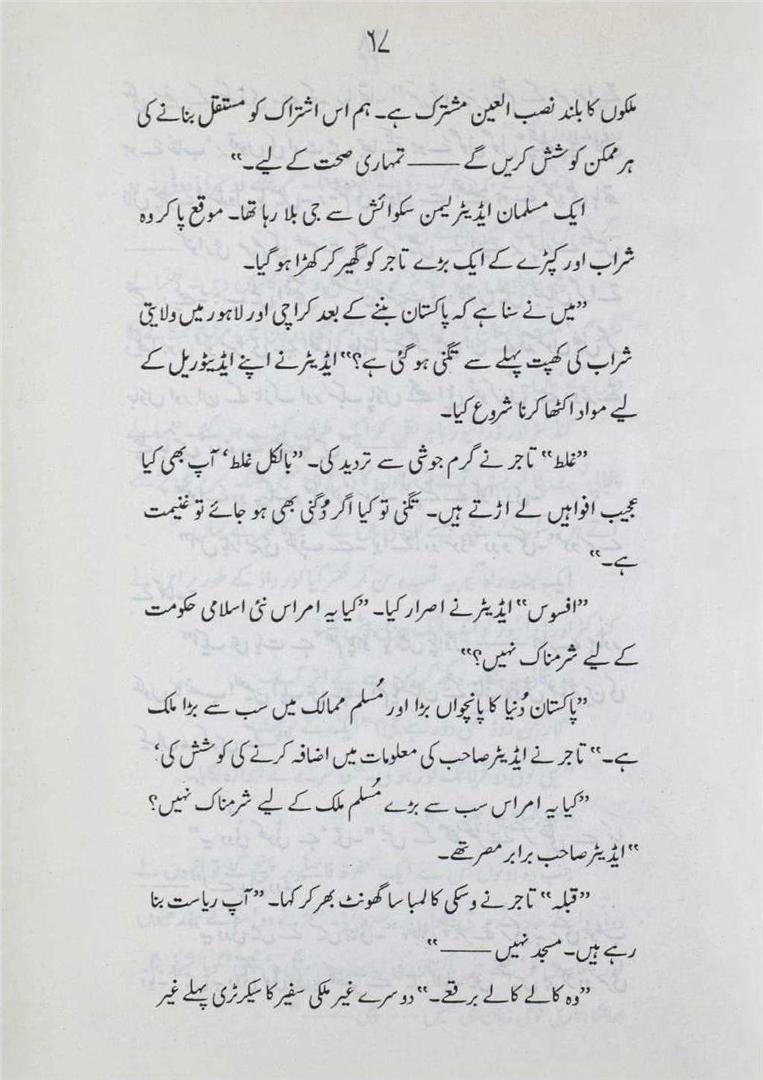 ۶۷
ملکوں کا بلند نصب العین مشترک ہے۔ ہم اس اشتراک کو مستقل بنانے کی
ہر ممکن کوشش کریں گے ——— تمہاری صحت کے لیے۔"
ایک مسلمان ایڈیٹر لیمن سکوائش سے جی بلا رہا تھا۔ موقع پا کر وہ
شراب اور کپڑے کے ایک بڑے تاجر کو گھیر کر کھڑا ہو گیا۔
"میں نے سنا ہے کہ پاکستان بننے کے بعد کراچی اور لاہور میں ولایتی
شراب کی کھپت پہلے سے تگنی ہو گئی ہے؟" ایڈیٹر نے اپنے ایڈیٹوریل کے
لیے مواد اکٹھا کرنا شروع کیا۔
"غلط" تاجر نے گرم جوشی سے تردید کی۔ "بالکل غلط، آپ بھی کیا
عجیب افواہیں لے اڑتے ہیں۔ تگنی تو کیا اگر دُگنی بھی ہو جائے تو غنیمت
ہے۔"
"افسوس" ایڈیٹر نے اصرار کیا۔ "کیا یہ امر اس نئی اسلامی حکومت
کے لیے شرمناک نہیں؟"
"پاکستان دُنیا کا پانچواں بڑا اور مُسلم ممالک میں سب سے بڑا ملک
ہے۔" تاجر نے ایڈیٹر صاحب کی معلومات میں اضافہ کرنے کی کوشش کی،
"کیا یہ امر اس سب سے بڑے مُسلم ملک کے لیے شرمناک نہیں؟
"ایڈیٹر صاحب برابر مصر تھے۔
"قبلہ" تاجر نے وسکی کا لمبا سا گھونٹ بھر کر کہا۔ "آپ ریاست بنا
رہے ہیں۔ مسجد نہیں ———"
"وہ کالے کالے برقعے۔" دوسرے غیر ملکی سفیر کا سیکرٹری پہلے غیر